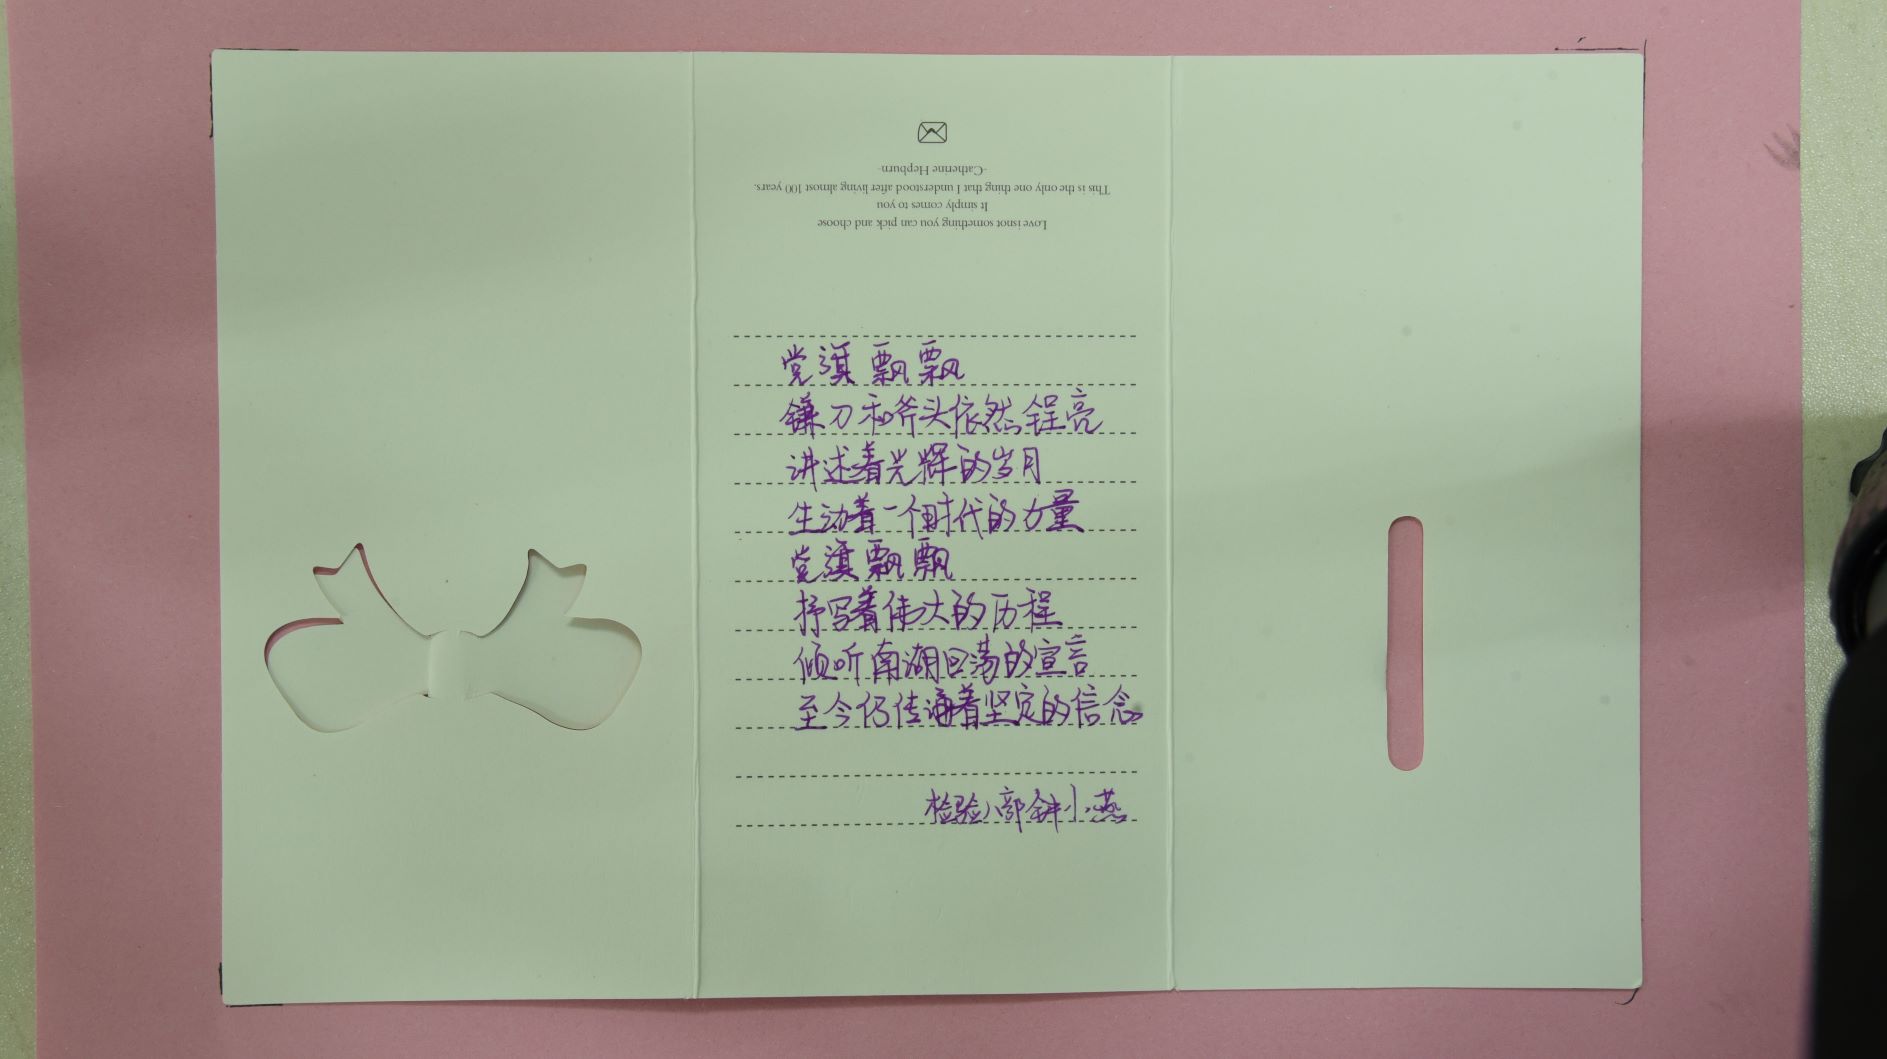 Love isnot something you can pick and choose
It simply comes to you
This is the only one thing that I understood after living almost 100 years.
-Catherine Hepburn-
党旗飘飘
镰刀和斧头依然锃亮
讲述着光辉的岁月
生动着一个时代的力量
党旗飘飘
抒写着伟大的历程
倾听南湖回荡的宣言
至今仍传诵着坚定的信念。
检验八部钟小燕